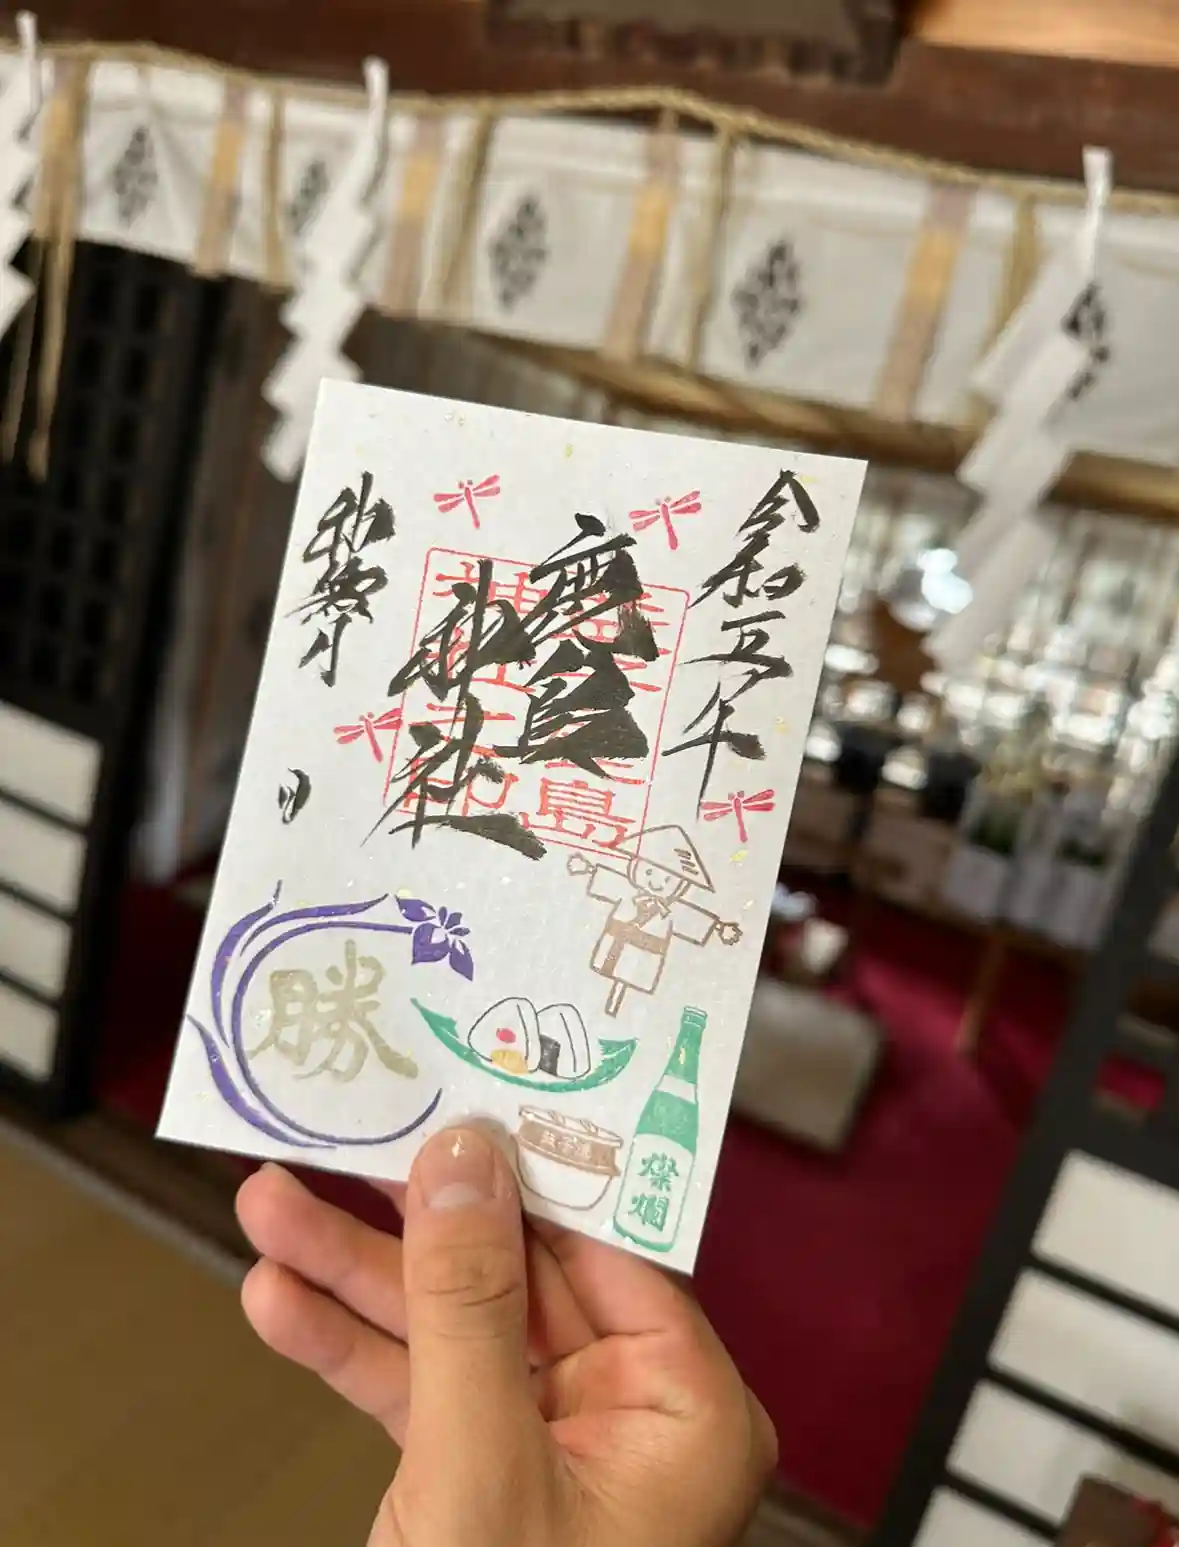 令和五年
鹿島
神社
神無月 日
勝
燦爛